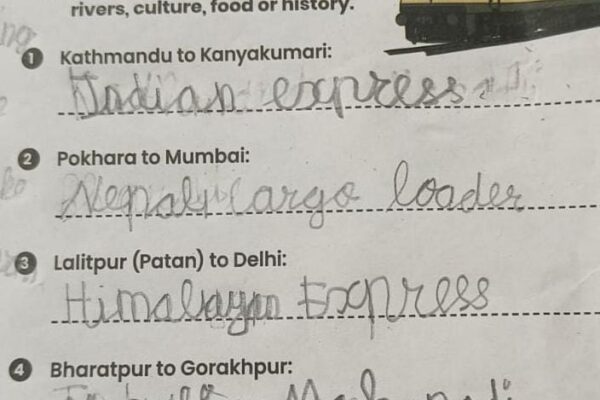 rivers, culture, food or history.
1 Kathmandu to Kanyakumari:
Indian express
2 Pokhara to Mumbai:
Nepali Cargo loader
3 Lalitpur (Patan) to Delhi:
Himalayan Express
4 Bharatpur to Gorakhpur: